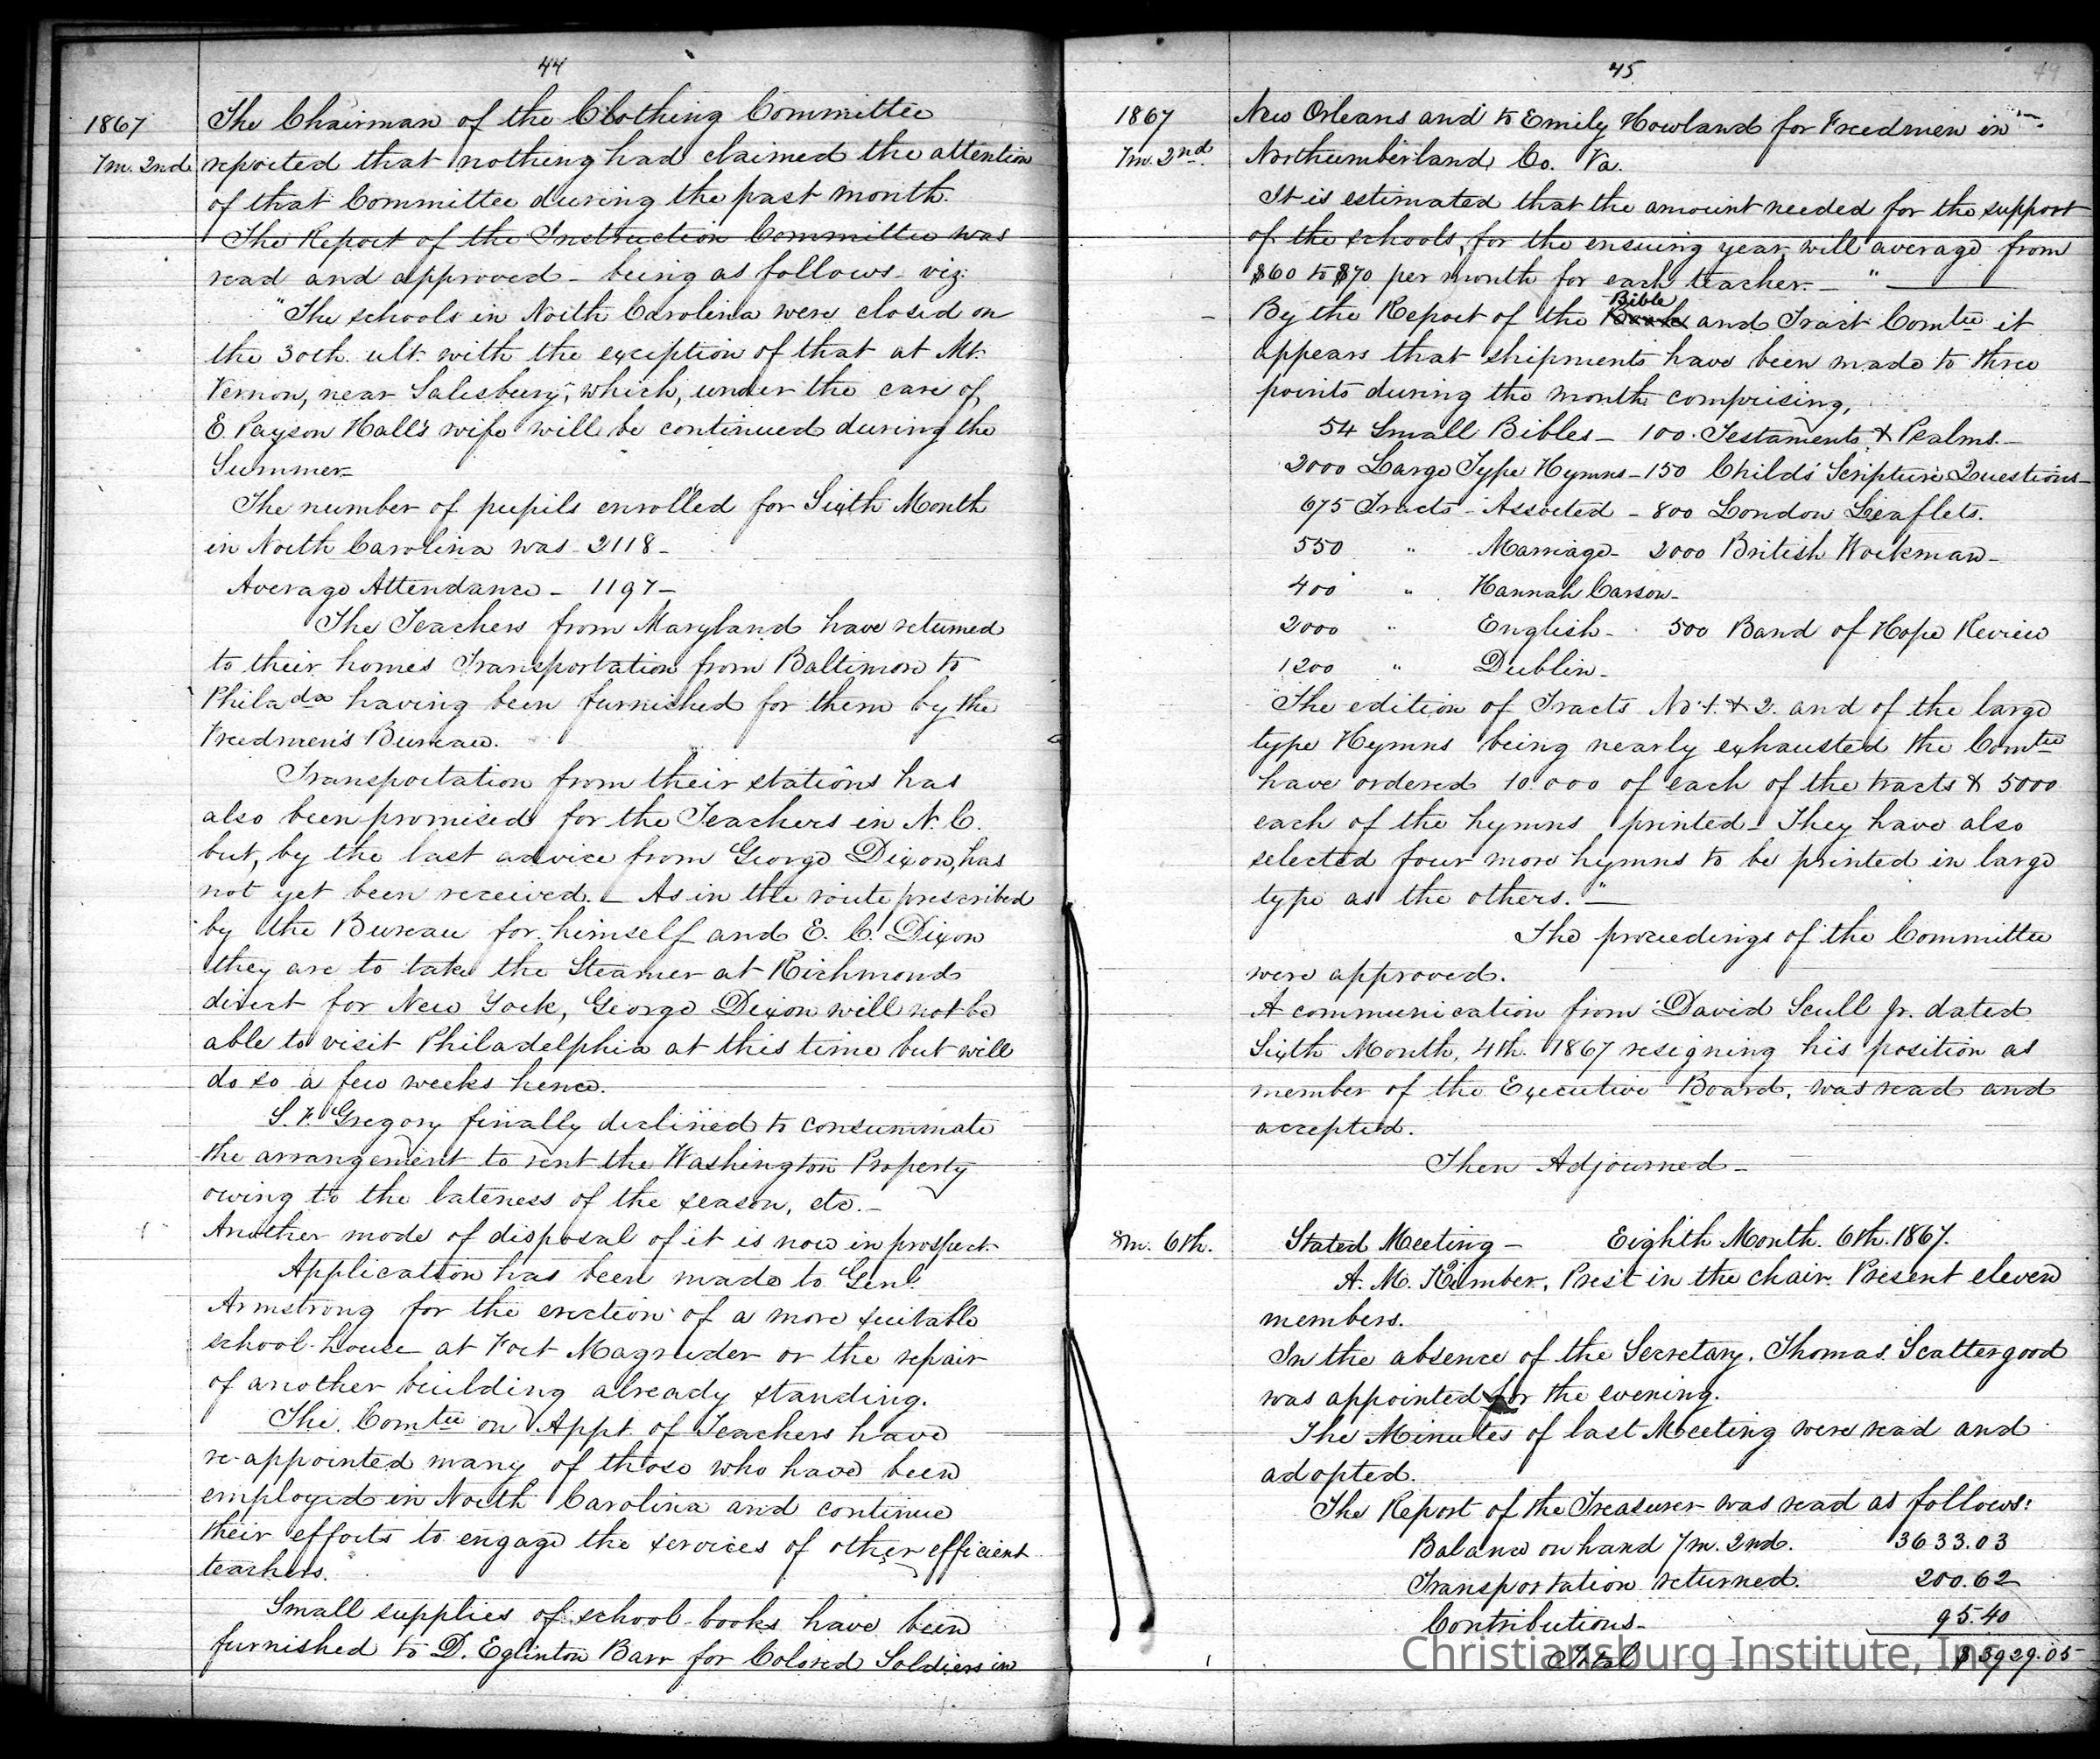 44
1867
7m. 2nd
The Chairman of the Clothing Committee
reported that nothing had claimed the attention
of that Committee during the past month.
The Report of the Instruction Committee was
read and approved - being as follows - viz:
"The schools in North Carolina were closed on
the 30th. ult. with the exception of that at Mt.
Vernon, near Salisbury, which, under the care of
E. Payson Hall's wife will be continued during the
Summer-
The number of pupils enrolled for Sixth Month
in North Carolina was - 2118 -
Average Attendance - 1197 -
The Teachers from Maryland have returned
to their homes Transportation from Baltimore to
Philada having been furnished for them by the
Freedmen's Bureau.
Transportation from their stations has
also been promised for the Teachers in N. C.
but, by the last advice from George Dixon, has
not yet been received. - As in the route prescribed
by the Bureau for himself and E. C. Dixon
they are to take the Steamer at Richmond
direct for New York, George Dixon will not be
able to visit Philadelphia at this time but will
do so a few weeks hence.
S. F. Gregory finally declined to consummate
the arrangement to rent the Washington Property
owing to the lateness of the season, etc. -
Another mode of disposal of it is now in prospect.
Application has been made to Genl.
Armstrong for the erection of a more suitable
school-house at Fort Magruder or the repair
of another building already standing.
The Comtee on Appt. of Teachers have
re-appointed many of those who have been
employed in North Carolina and continue
their efforts to engage the services of other efficient
teachers.
Small supplies of school-books have been
furnished to D. Eglinton Barr for Colored Soldiers in
45
1867
7m. 2nd.
New Orleans and to Emily Howland for Freedmen in
Northumberland Co. Va.
It is estimated that the amount needed for the support
of the schools, for the ensuing year, will average from
$60 to $70 per month for each teacher. - "
By the Report of the Bible and Tract Comtee it
appears that shipments have been made to three
points during the month comprising,
54 Small Bibles - 100 Testaments & Psalms. -
2000 Large Type Hymns - 150 Child's Scripture Questions -
675 Tracts - Assorted - 800 London Leaflets.
550 " Marriage - 2000 British Workman -
400 " Hannah Carson -
2000 " English - 500 Band of Hope Review
1200 " Dublin -
"The edition of Tracts No. 1. & 2. and of the large
type Hymns being nearly exhausted the Comtee
have ordered 10.000 of each of the tracts & 5000
each of the hymns printed - They have also
selected four more hymns to be printed in large
type as the others." -
The proceedings of the Committee
were approved.
A communication from David Scull Jr. dated
Sixth Month, 4th. 1867 resigning his position as
member of the Executive Board, was read and
accepted.
Then Adjourned -
8m. 6th.
Stated Meeting - Eighth Month. 6th. 1867.
A. M. Kimber, Prest in the chair. Present eleven
members.
In the absence of the Secretary, Thomas Scattergood
was appointed for the evening.
The Minutes of last Meeting were read and
adopted.
The Report of the Treasurer was read as follows:
Balance on hand 7m. 2nd. 3633.03
Transportation returned. 200.62
Contributions - 95.40
Total $3929.05
Christiansburg Institute, Inc